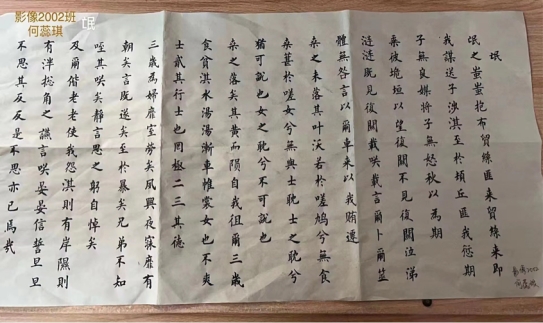 影像2002班
何蕊琪
氓
氓
氓之蚩蚩抱布貿絲匪来貿絲来即
我謀送子涉淇至於頓丘匪我愆期
子無良媒將子無怒秋以為期
乘彼垝垣以望復關不見復關泣涕
漣漣既見復關載咲載言爾卜爾筮
體無咎言以爾車来以我賄遷
桑之未落其叶沃若於嗟鳩兮無食
桑葚於嗟女兮無與士耽士之耽兮
猶可說也女之耽兮不可說也
桑之落矣其黄而隕自我徂爾三歲
食貧淇水湯湯漸車帷裳女也不爽
士貳其行士也罔極二三其德
三歲為婦靡室勞矣夙興夜寐靡有
朝矣言既遂矣至於暴矣兄弟不知
咥其咲矣靜言思之躬自悼矣
及爾偕老老使我怨淇則有岸隰則
有泮總角之讌言咲晏晏信誓旦旦
不思其反反是不思亦已焉哉
影像2002
何蕊琪